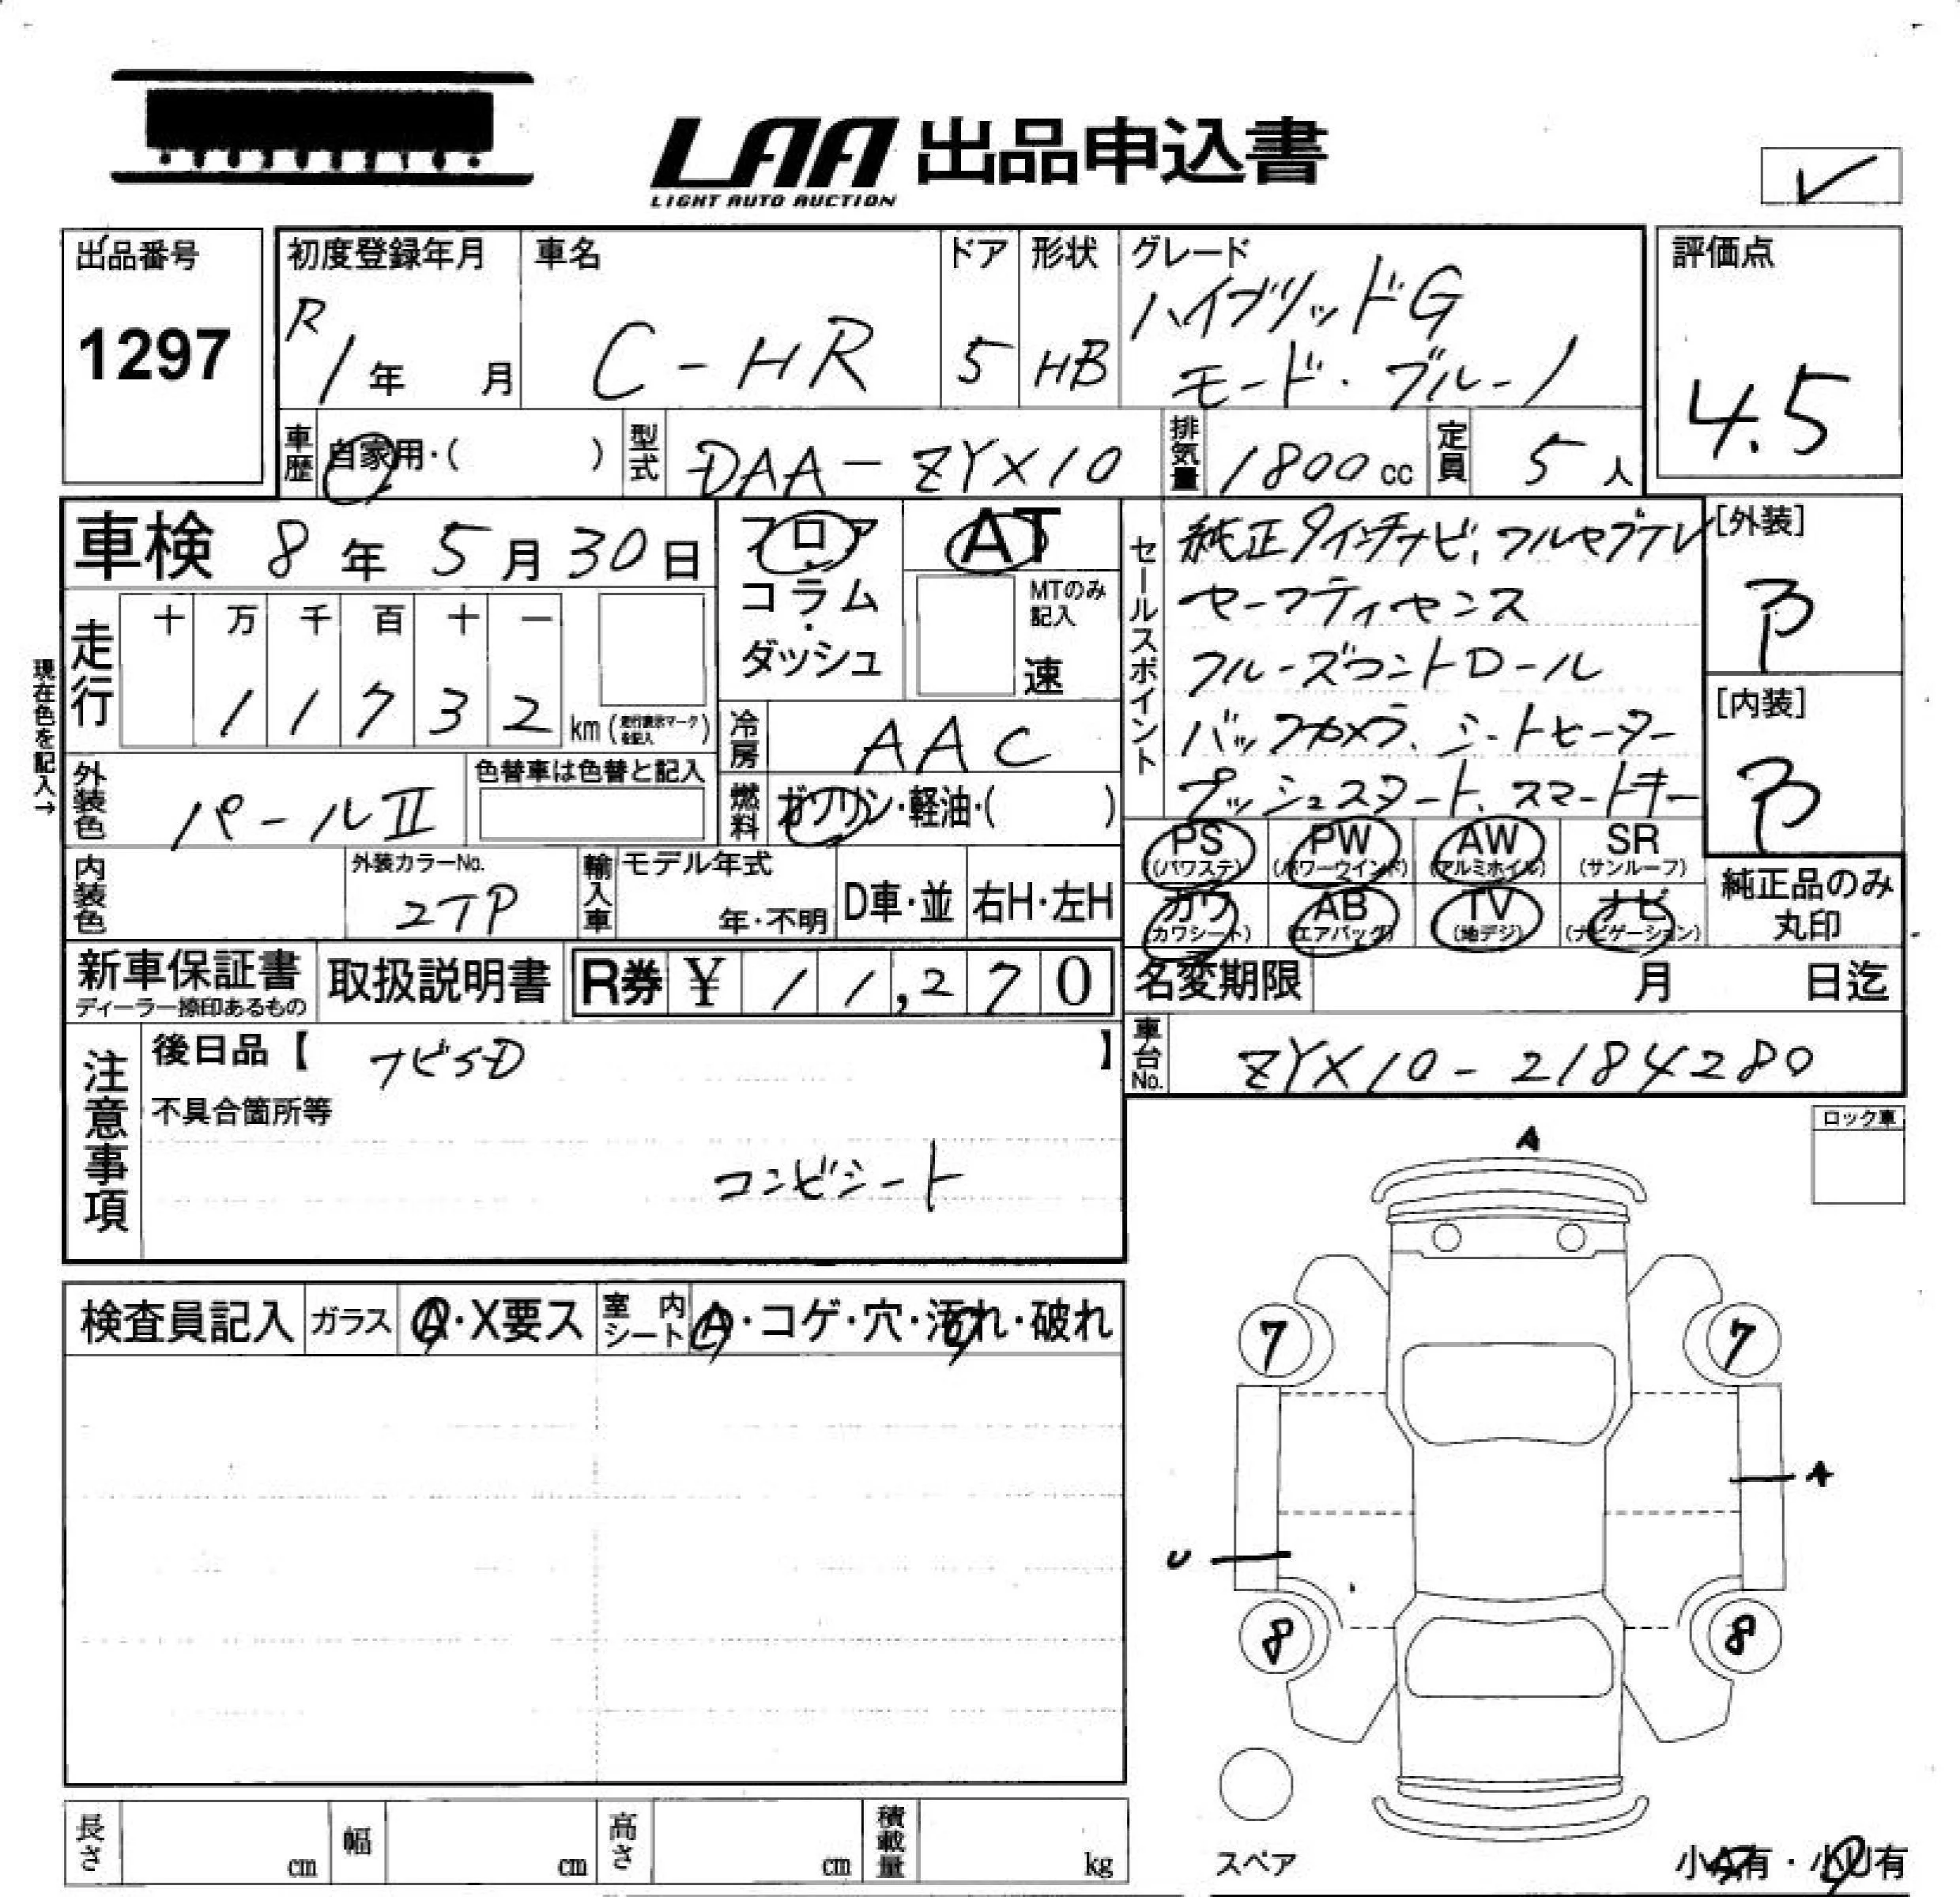 LAA 出品申込書
LIGHT AUTO AUCTION
✓
出品番号
1297
初度登録年月
R1年 月
車名
C-HR
ドア
5
形状
HB
グレード
ハイブリッドG
モード・ブルーノ
評価点
4.5
車歴
自家用・( )
型式
DAA-ZYX10
排気量
1800cc
定員
5人
車検 8年5月30日
フロア
コラム
・
ダッシュ
AT
MTのみ
記入
速
走行
十 万 千 百 十 一
1 1 7 3 2
km(走行表示マークを記入)
現在色を記入→
冷房
AAC
燃料
ガソリン・軽油・( )
外装色
パールⅡ
色替車は色替と記入
内装色
外装カラーNo.
2TP
輸入車
モデル年式
年・不明
D車・並
右H・左H
セールスポイント
純正9インチナビ、フルセグテレ
セーフティセンス
クルーズコントロール
バックカメラ、シートヒーター
プッシュスタート、スマートキー
[外装]
[内装]
PS
(パワステ)
PW
(パワーウインド)
AW
(アルミホイル)
SR
(サンルーフ)
カワ
(カワシート)
AB
(エアバッグ)
TV
(地デジ)
ナビ
(ナビゲーション)
純正品のみ
丸印
新車保証書
ディーラー捺印あるもの
取扱説明書
R券 ¥ 11,270
名変期限 月 日迄
車台No.
ZYX10-2184280
注意事項
後日品【 ナビSD 】
不具合箇所等
コンビシート
ロック車
検査員記入
ガラス
A・X要ス
室内シート
A・コゲ・穴・汚れ・破れ
A
7 7
A
U
8 8
スペア
小A有・小U有
長さ cm
幅 cm
高さ cm
積載量 kg